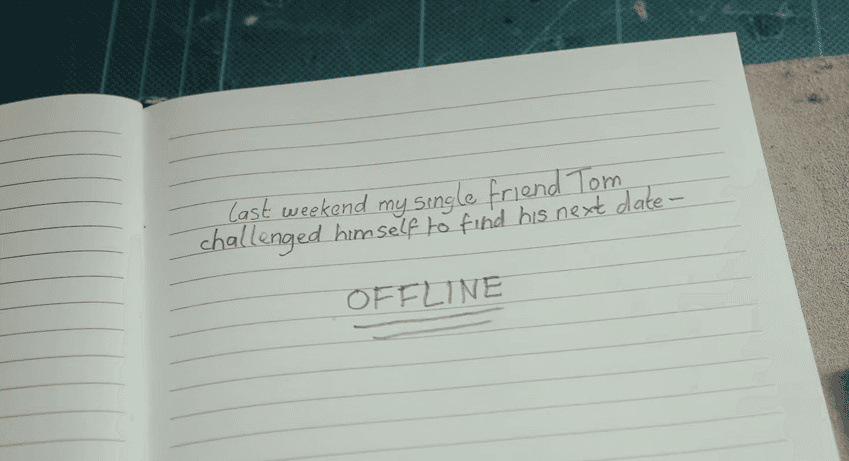 last weekend my single friend Tom
challenged himself to find his next date-
OFFLINE